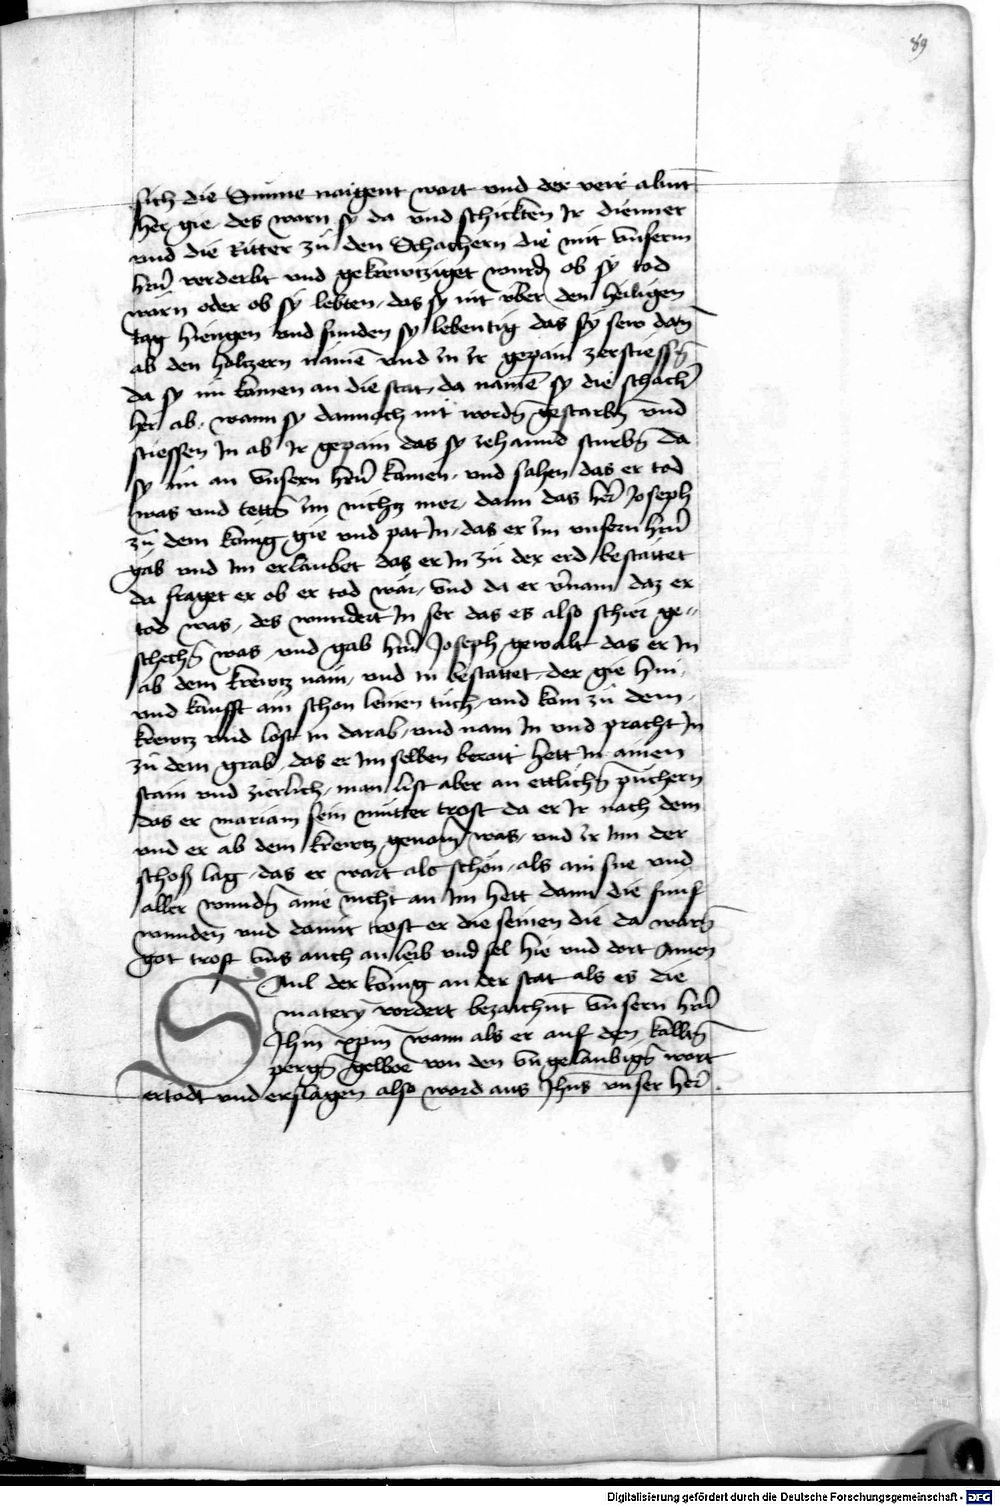 89
sich die Sunne naigent wart und der veir abent
her gie des warn sy da und schickten Jr diener
und die Ritter zu den Schachern die mit unserm
herrn verderbt und gekrewtziget wurdn ob sy tod
wärn oder ob sy lebten das sy nit uber den heiligen
tag hiengen und funden sy lebentig das sy sew dann
ab den holtzern namen und In Ir gepain zerstiessn
da sy nu komen an die stat da namen sy die schacher
her ab wann sy dannoch nit wordn gestarbn und
stiessen In ab Ir gepain das sy zehannd sturbn da
sy nu an unsern herrn kamen und sahen das er tod
was und tettn Im nichtz mer dann das her Joseph
zu dem konig gie und pat In das er Im unsern herrn
gab und Im erlaubet das er In zu der erd bestattet
da fraget er ob er tod wär und da er vernam daz er
tod was des wundert In ser das es also schier ge-
schechn was und gab herrn Joseph gewalt das er In
ab dem krewtz nam und in bestattet der gie hin
und kaufft ain schon leinen tuch und kom zu dem
krewtz und lost in darab und nam In und pracht In
zu dem grab das er Im selben berait hett In ainen
stain und zierlich man list aber an ettlichn puchern
das er mariam sein mutter trost da er Ir nach dem
und er ab dem krewtz genomen was und Ir Inn der
schoss lag das er wart als schön als ain sne und
aller wundn anie nicht an Im hett dann die funf
wunden und damit trost er die seinen die da warn
got trost uns auch an leib und sel hie und dort Amen
Saul der konig an der stat als es die
matery vordert bezaichnt unsern herrn
Jhm xpm wann als er auf den kallten
pergn gelboe von den ungelaubign wart
ertodt und erslagen also ward aus Jhus unser herr
Digitalisierung gefördert durch die Deutsche Forschungsgemeinschaft - DFG